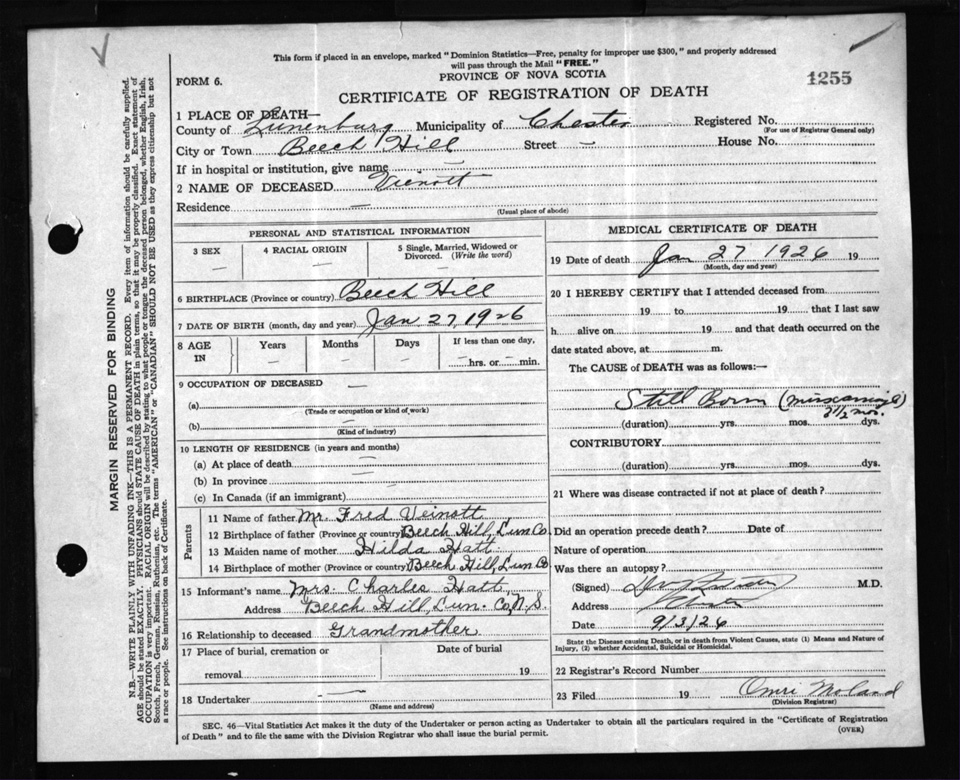 This form if placed in an envelope, marked "Dominion Statistics—Free, penalty for improper use $300," and properly addressed
will pass through the Mail "FREE."
FORM 6.
PROVINCE OF NOVA SCOTIA
1255
CERTIFICATE OF REGISTRATION OF DEATH
1 PLACE OF DEATH—
County of Lunenburg Municipality of Chester Registered No.
(For use of Registrar General only)
City or Town Beech Hill Street — House No.
If in hospital or institution, give name —
2 NAME OF DECEASED Veinott
Residence —
(Usual place of abode)
PERSONAL AND STATISTICAL INFORMATION
3 SEX — 4 RACIAL ORIGIN — 5 Single, Married, Widowed or
Divorced. (Write the word) —
6 BIRTHPLACE (Province or country) Beech Hill
7 DATE OF BIRTH (month, day and year) Jan 27, 1926
8 AGE IN Years Months Days If less than one day,
— — — —hrs. or —min.
9 OCCUPATION OF DECEASED —
(a)
(Trade or occupation or kind of work)
(b)
(Kind of industry)
10 LENGTH OF RESIDENCE (in years and months)
(a) At place of death —
(b) In province —
(c) In Canada (if an immigrant) —
Parents
11 Name of father Mr. Fred Veinott
12 Birthplace of father (Province or country) Beech Hill, Lun Co.
13 Maiden name of mother Hilda Hatt
14 Birthplace of mother (Province or country) Beech Hill, Lun Co
15 Informant's name Mrs Charles Hatt
Address Beech Hill, Lun. Co, N.S.
16 Relationship to deceased Grandmother
17 Place of burial, cremation or Date of burial
removal 19
18 Undertaker —
(Name and address)
MEDICAL CERTIFICATE OF DEATH
19 Date of death Jan 27 1926 19
(Month, day and year)
20 I HEREBY CERTIFY that I attended deceased from
19 to 19 that I last saw
h alive on 19 and that death occurred on the
date stated above, at m.
The CAUSE of DEATH was as follows:—
Still Born (miscarriage)
1/2 mos.
(duration) yrs. mos. dys.
CONTRIBUTORY
(duration) yrs. mos. dys.
21 Where was disease contracted if not at place of death?
Did an operation precede death? Date of
Nature of operation
Was there an autopsy?
(Signed) M.D.
Address Chester
Date 9/3/26
State the Disease causing Death, or in death from Violent Causes, state (1) Means and Nature of
Injury, (2) whether Accidental, Suicidal or Homicidal.
22 Registrar's Record Number
23 Filed 19 Omri
(Division Registrar)
SEC. 46—Vital Statistics Act makes it the duty of the Undertaker or person acting as Undertaker to obtain all the particulars required in the "Certificate of Registration
of Death" and to file the same with the Division Registrar who shall issue the burial permit.
(OVER)
MARGIN RESERVED FOR BINDING
N.B.—WRITE PLAINLY WITH UNFADING INK—THIS IS A PERMANENT RECORD. Every item of information should be carefully supplied.
AGE should be stated EXACTLY. PHYSICIANS should STATE CAUSE OF DEATH in plain terms, so that it may be properly classified. Exact statement of
OCCUPATION is very important. RACIAL ORIGIN will be described by stating to what people or tongue the deceased person belonged, whether English, Irish,
Scotch, French, German, Russian, Ruthenian, etc. The terms "AMERICAN" or "CANADIAN" SHOULD NOT BE USED as they express citizenship but not
a race or people. See instructions on back of Certificate.